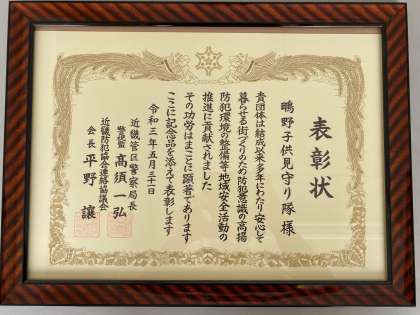 表彰状
鴫野子供見守り隊 様
貴団体は結成以来多年にわたり安心して
暮らせる街づくりのため防犯意識の高揚
防犯環境の整備等地域安全活動の
推進に貢献されました
その功労はまことに顕著であります
ここに記念品を添えて表彰します
令和三年五月三十一日
近畿管区警察局長
警視監 高須一弘
近畿防犯協会連絡協議会
会長 平野讓